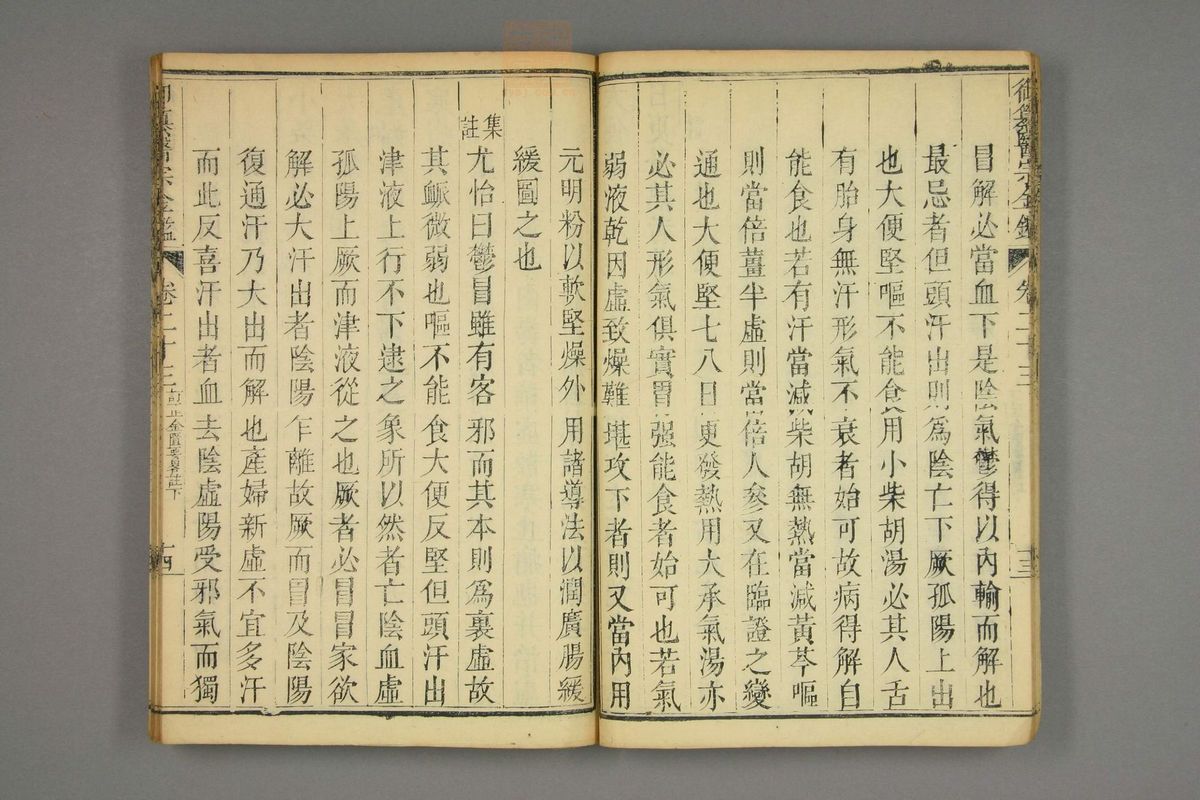 冒解必當血下是陰氣鬱得以內輸而解也
最忌者但頭汗出則為陰亡下厥孤陽上出
也大便堅嘔不能食用小柴胡湯必其人舌
有胎身無汗形氣不衰者始可故病得解自
能食也若有汗當減柴胡無熱當減黃芩嘔
則當倍薑半虛則當倍人參又在臨證之變
通也大便堅七八日更發熱用大承氣湯亦
必其人形氣俱實胃强能食者始可也若氣
弱液乾因虛致燥難堪攻下者則又當內用
元明粉以軟堅燥外用諸導法以潤廣腸緩
緩圖之也
集註
尤怡曰鬱冒雖有客邪而其本則為裏虛故
其脈微弱也嘔不能食大便反堅但頭汗出
津液上行不下逮之象所以然者亡陰血虛
孤陽上厥而津液從之也厥者必冒冒家欲
解必大汗出者陰陽乍離故厥而冒及陰陽
復通汗乃大出而解也產婦新虛不宜多汗
而此反喜汗出者血去陰虛陽受邪氣而獨
卷二十三
訂正金匱要畧註下
十四